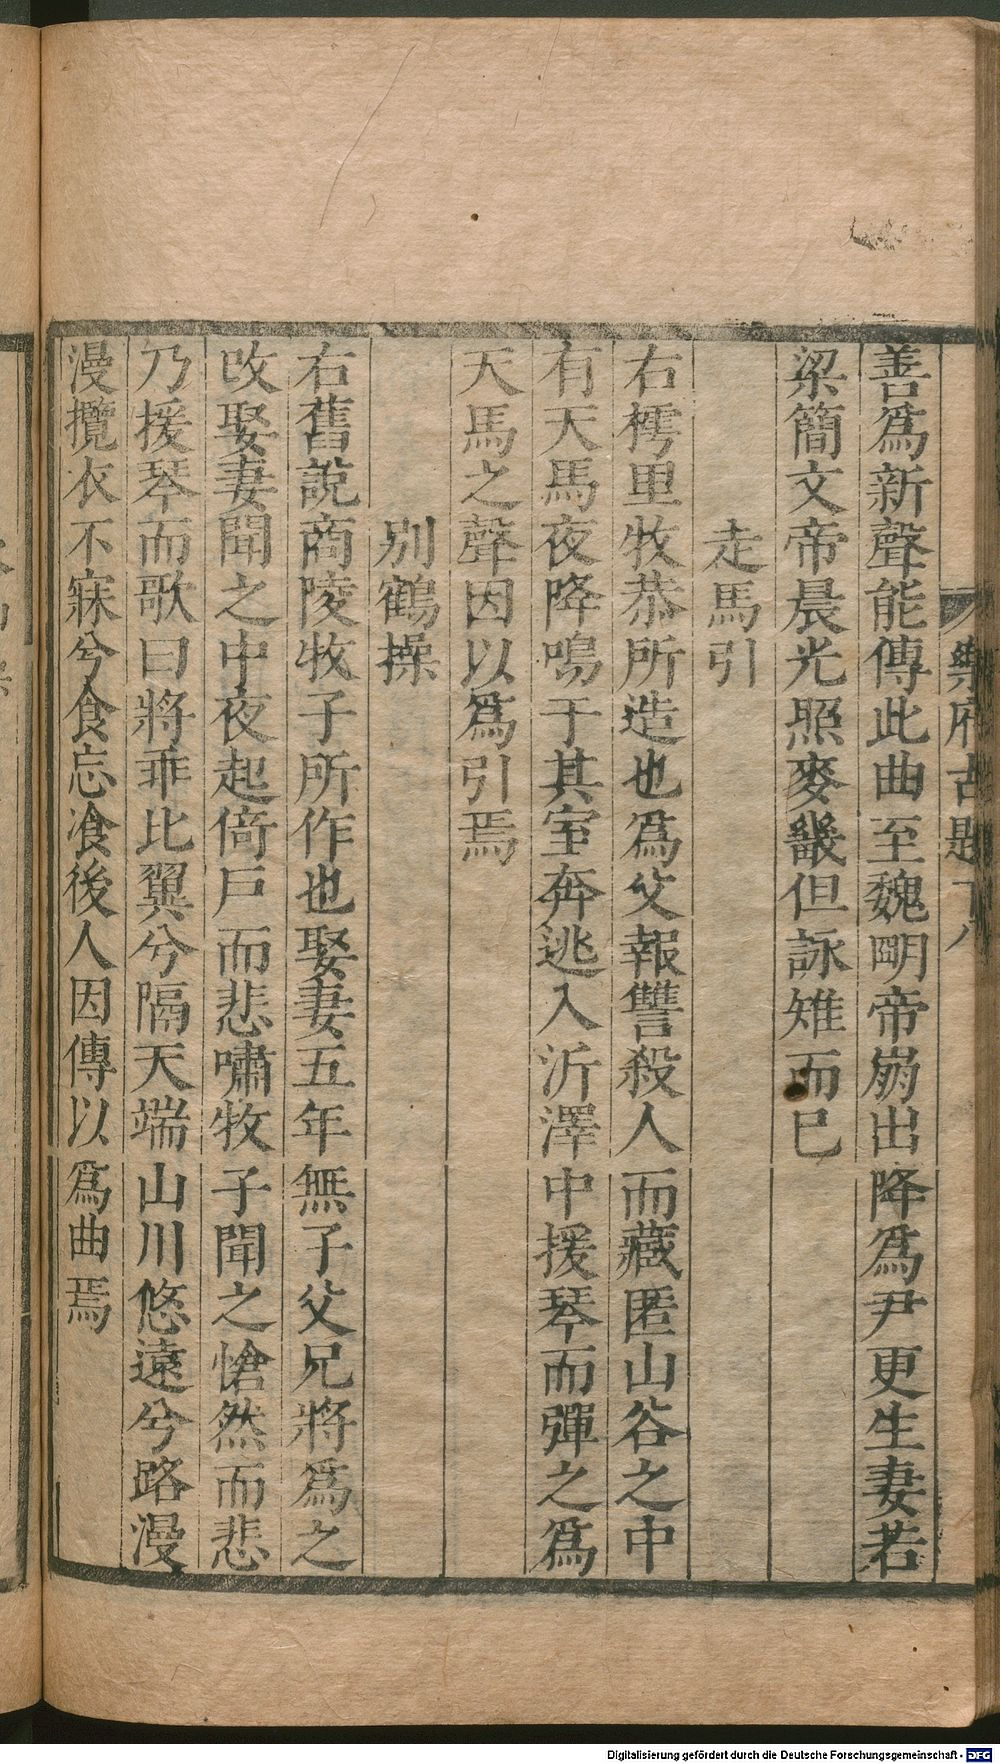 樂府古題下 八
善爲新聲能傳此曲至魏明帝崩出降爲尹更生妻若
梁簡文帝晨光照麥畿但詠雉而已
走馬引
右樗里牧恭所造也爲父報讐殺人而藏匿山谷之中
有天馬夜降鳴于其室奔逃入沂澤中援琴而彈之爲
天馬之聲因以爲引焉
别鶴操
右舊說商陵牧子所作也娶妻五年無子父兄將爲之
改娶妻聞之中夜起倚戶而悲嘯牧子聞之愴然而悲
乃援琴而歌曰將乖比翼兮隔天端山川悠遠兮路漫
漫攬衣不寐兮食忘飡後人因傳以爲曲焉
Digitalisierung gefördert durch die Deutsche Forschungsgemeinschaft - DFG